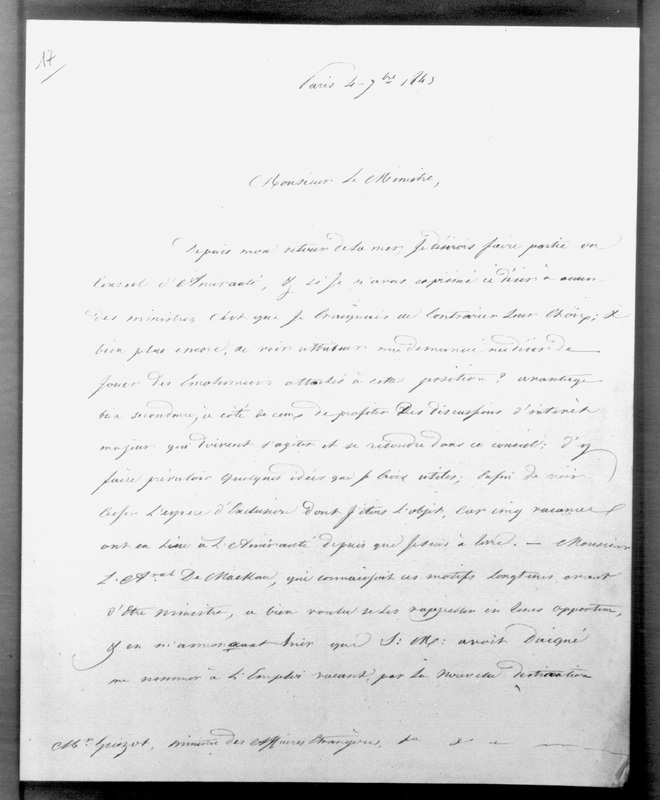 17
Paris 4 7bre 1843
Monsieur Le Ministre,
Depuis mon retour de la mer, Je désirois faire partie du
Conseil d'Amirauté, & si Je n'avois exprimé ce désir à aucun
des ministres c'est que Je Craignais de Contrarier Leur Choix; &
bien plus encore, de voir attribuer ma demande au désir de
Jouer des Emolumens attachés à cette position? avantage
bien secondaire, à côté de ceux de profiter Des discussions d'intérêt
majeur qui doivent s'agiter et se résoudre dans ce conseil: d'y
faire prévaloir quelques idées que Je Crois utiles; Enfin de voir
Cesser L'espèce d'Exclusion dont J'étois L'objet, Car cinq vacances
ont eu Lieu à L'Amirauté depuis que Je suis à terre. — Monsieur
L'Aral De Mackau, qui connaissait ces motifs Longtems avant
d'être ministre, a bien voulu se les rappeller en tems opportun,
& en m'annonçant hier que S: M: avoit Daigné
me nommer à L'Emploi vacant, par La nouvelle destination
Mr Guizot, ministre des Affaires Etrangères, &